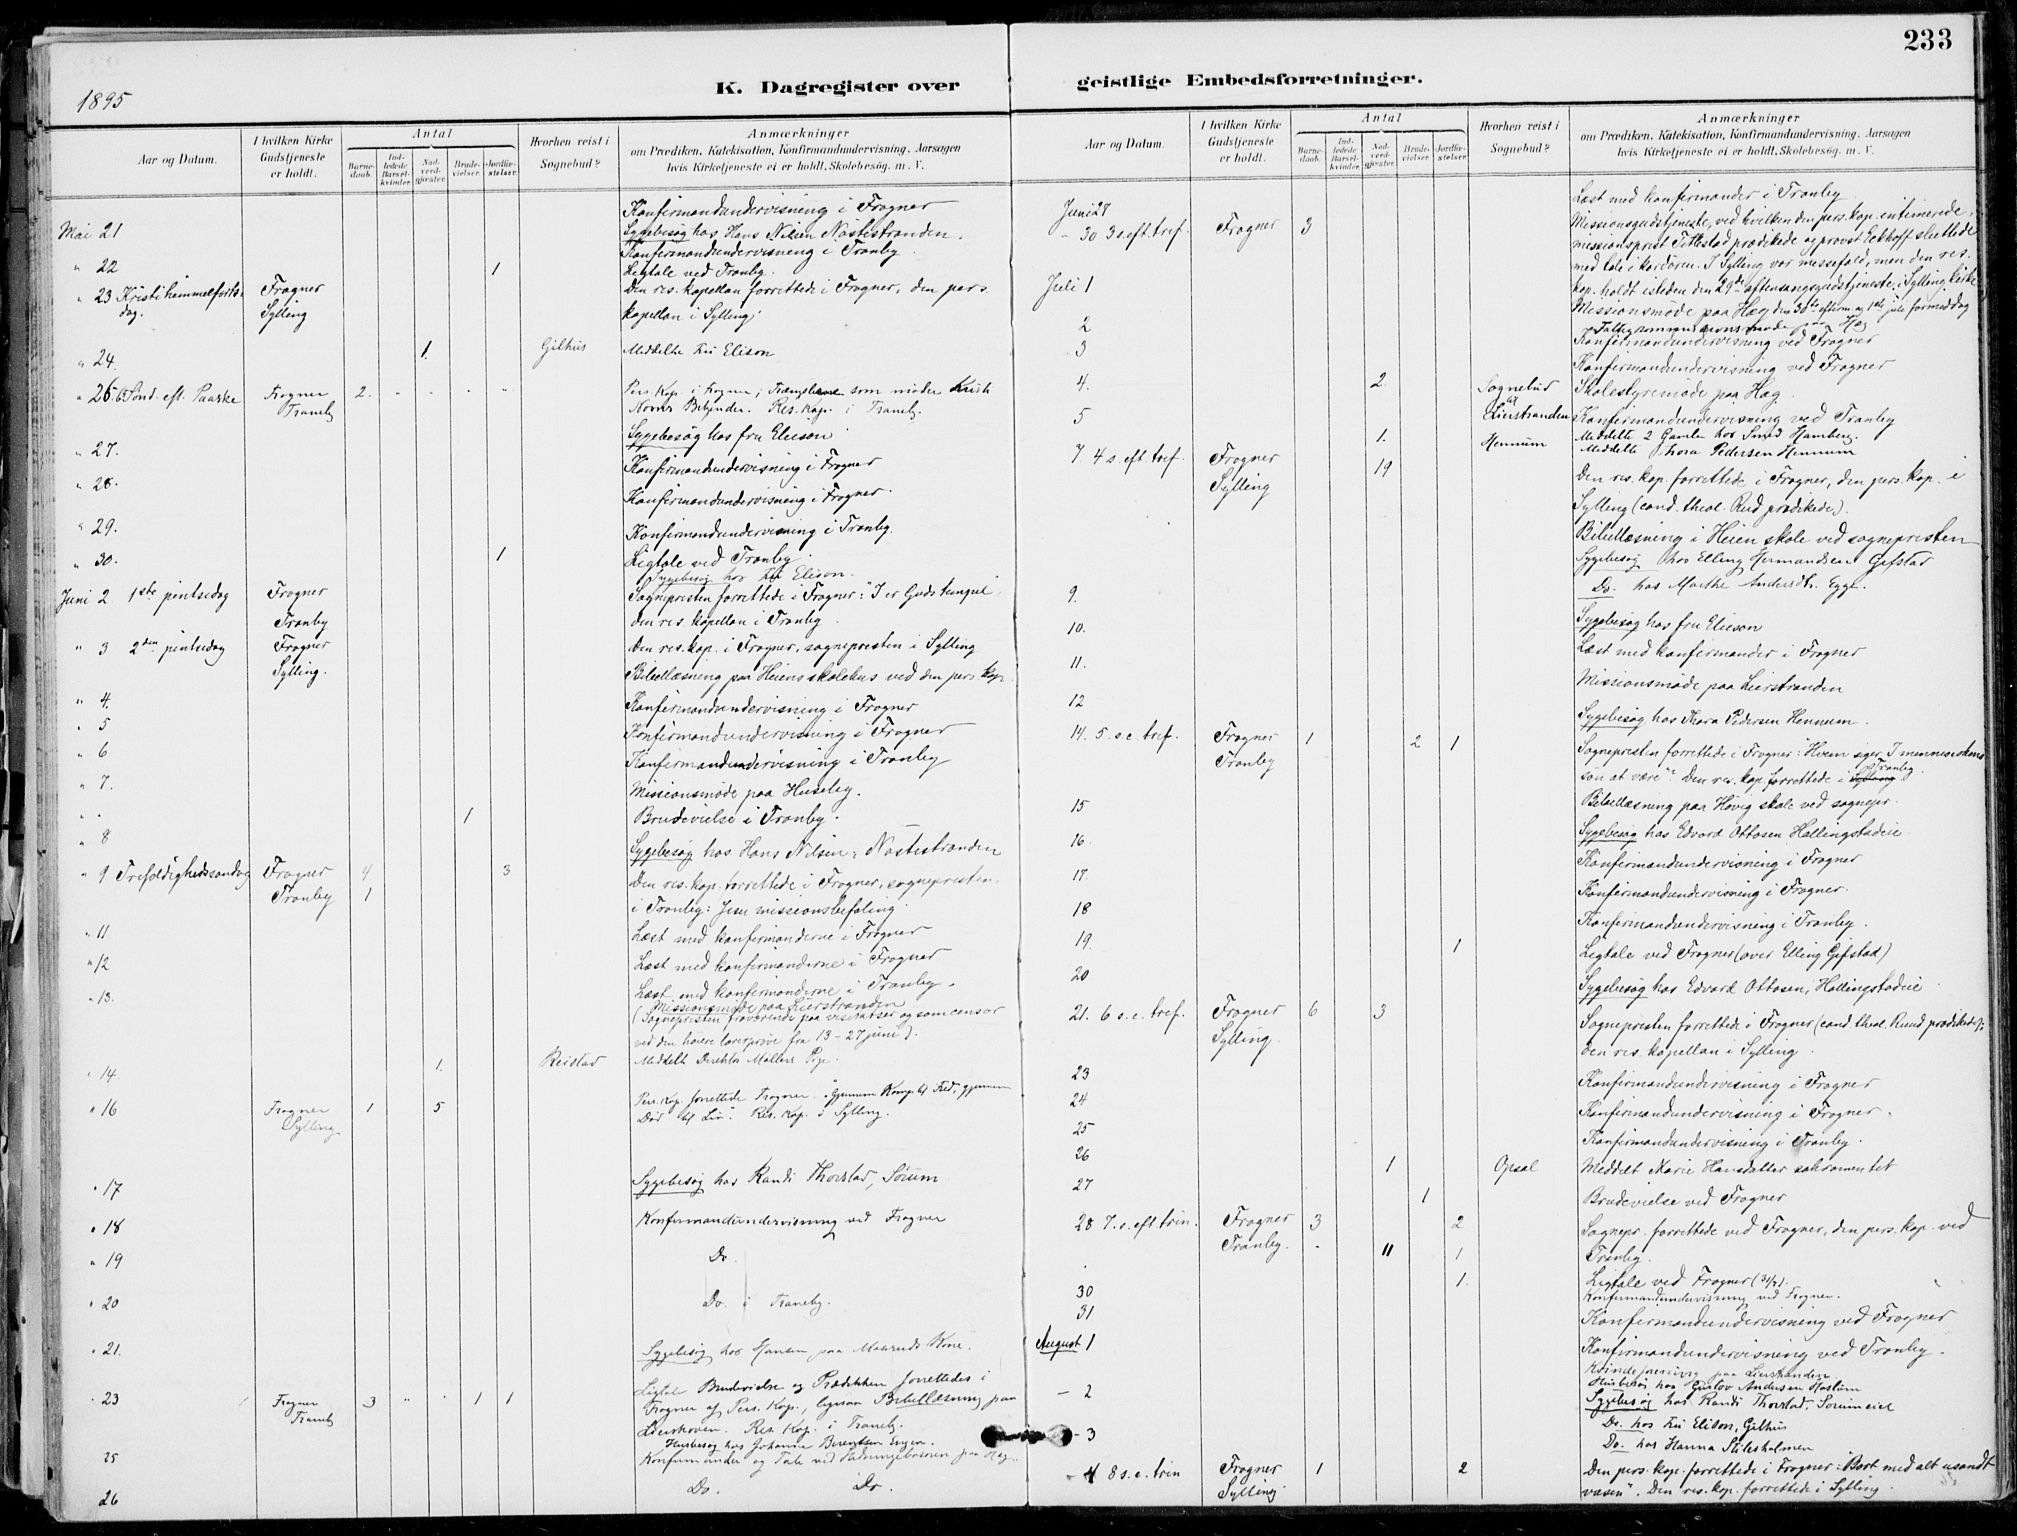 233
K. Dagregister over geistlige Embedsforretninger.
1895
Aar og Datum.
I hvilken Kirke Gudstjeneste er holdt.
Antal
Barnedaab.
Indledede Barselkvinder.
Nadverdgjæster.
Brudevielser.
Jordfæstelser.
Hvorhen reist i Sognebud?
Anmærkninger
om Prædiken, Katekisation, Konfirmandundervisning, Aarsagen hvis Kirketjeneste ei er holdt, Skolebesøg. m. V.
Mai 21 Konfirmandundervisning i Frogner
Sygebesøg hos Hans Nilsen Nøstestranden.
" 22 Konfirmandundervisning i Tranby.
1 Ligtale ved Tranby.
" 23 Kristi himmelfarts- Frogner Den res. kapellan forrettede i Frogner, den pers.
dag. Sylling kapellan i Sylling.
" 24. 1. Gilhus Meddelte Fru Elison
" 26. 6 Sønd. eft. Paaske Frogner 2. Pers. Kap. i Frogner; som
Tranby Res. Kap. i Tranby.
Sygebesøg hos fru Elieson
" 27. Konfirmandundervisning i Frogner
" 28. Konfirmandundervisning i Frogner.
" 29. Konfirmandundervisning i Tranby.
" 30. 1 Ligtale ved Tranby
Sygebesøg hos Fru Elison.
Juni 2 1ste pintsedag Frogner Sognepresten forrettede i Frogner: "I er Guds tempel",
Tranby den res. kapellan i Tranby.
" 3 2den pintsedag Frogner Den res. kap. i Frogner, sognepresten i Sylling
Sylling. Bibellæsning paa Heiens skolehus ved den pers. kap.
" 4. Konfirmandundervisning i Frogner
" 5 Konfirmandundervisning i Frogner
" 6 Konfirmandundervisning i Tranby
" 7. Missionsmøde paa Huseby.
" " 1 Brudevielse i Tranby.
" 8 Sygebesøg hos Hans Nilsen, Nøstestranden
" 9 Trefoldighedssøndag Frogner 4 3 Den res. kap. forrettede i Frogner, sognepresten
Tranby 1 i Tranby: Jesu missionsbefaling.
" 11 Læst med konfirmanderne i Frogner
" 12 Læst med konfirmanderne i Frogner
" 13. Læst med konfirmanderne i Tranby.
Missionsmøde paa Lierstranden
(Sognepresten fraværende paa visitatser og som censor
ved den høiere lærerprøve fra 13 - 27 juni).
" 14. 1. Reistad Meddelt Direktør Møllers Pige.
" 16 Frogner 1 5 Pers. Kap. forrettede Frogner. "Gjennem Kamp til Fred, gjennem
Sylling Død til Liv". Res. Kap. i Sylling.
" 17 Sygebesøg hos Randi Thorstad, Sørum
" 18 Konfirmandundervisning ved Frogner
" 19 Do.
" 20 Do. i Tranby.
" 21. Sygebesøg hos Hansen paa Kone.
" 23 Frogner 3 " " 1 1 Ligtale Brudevielse og Prædiken forrettedes i
Tranby Frogner af Pers. Kap., ligesaa Bibellæsning paa
Res. Kap. i Tranby.
Husbesøg hos Johanne Berentsen Engen.
25 Konfirmander og Tale ved paa Hæg.
26 Do. Do.
Aar og Datum.
I hvilken Kirke Gudstjeneste er holdt.
Antal
Barnedaab.
Indledede Barselkvinder.
Nadverdgjæster.
Brudevielser.
Jordfæstelser.
Hvorhen reist i Sognebud?
Anmærkninger
om Prædiken, Katekisation, Konfirmandundervisning, Aarsagen hvis Kirketjeneste ei er holdt, Skolebesøg. m. V.
Juni 27 Læst med konfirmander i Tranby
" 30 3 s. eft. tref. Frogner 3 Missionsgudstjeneste, ved hvilken den pers. kap. intimerede,
missionsprest Tittestad prædikede og provst Eckhoff sluttede
med tale i kordøren. I Sylling var messefald, men den res.
kap. holdt isteden den 29de aftensangsgudstjeneste i Sylling kirke
Juli 1 Missionsmøde paa Hæg den 30te efterm. og 1ste juli formiddag
2 paa Hæg
3 Konfirmandundervisning ved Frogner
Konfirmandundervisning ved Frogner
4. 2 Sognebud Skolestyremøde paa Hæg.
5 til Lierstranden Konfirmandundervisning ved Tranby
Meddelte 2 Gamle hos Smed Hamberg.
1. Hennum Meddelte Thora Pedersen Hennum
7 4 s. eft. tref. Frogner 19 Den res. kap. forrettede i Frogner, den pers. kap. i
Sylling Sylling (cand. theol. Rud prædikede).
Bibellæsning i Heien skole ved sognepresten
Sygebesøg hos Elling Hermandsen Gifstad
9. Do. hos Marthe Andersdt. Egge.
10. Sygebesøg hos fru Elieson
11. Læst med konfirmander i Frogner
12 Missionsmøde paa Lierstranden
Sygebesøg hos Thora Pedersen Hennum.
14. 5. s. e. tref. Frogner 1 2 1 Sognepresten forrettede i Frogner: "Hvem siger I menneskens
Tranby søn at være" Den res. kap. forrettede i Sylling Tranby.
15 Bibellæsning paa Høvig skole ved sognepr.
16. Sygebesøg hos Edvard Ottosen Hallingstadeie
17. Konfirmandundervisning i Frogner
18 Konfirmandundervisning i Frogner.
19. Konfirmandundervisning i Tranby.
20 1 Ligtale ved Frogner (over Elling Gifstad)
Sygebesøg hos Edvard Ottosen, Hallingstadeie.
21. 6 s. e. tref. Frogner 6 3 Sognepresten forrettede i Frogner (cand. theol. Ruud prædikede);
Sylling. den res. kapellan i Sylling.
23 Konfirmandundervisning i Frogner
24 Konfirmandundervisning i Frogner.
25 Konfirmandundervisning i Tranby.
26 1 Opsal Meddelt Marie Hansdatter sakramentet
27 1 Brudevielse ved Frogner
28 7. s. eft. trin. Frogner 3 2 Sognepr. forrettede ved Frogner, den pers. kap. ved
Tranby. " 11 1 Tranby.
1. Ligtale ved Frogner (31/7).
30 Konfirmandundervisning ved Frogner.
31 Konfirmandundervisning ved Frogner
August 1 Konfirmandundervisning ved Tranby.
Kvindeforening paa Lierstranden
- 2 Husbesøg hos Gustav Andersen Haslum
Sygebesøg hos Randi Thorstad, Sørumeie
Do. hos Fru Elison, Gilhus
- 3 Do. hos Hanna Stilesholmen
" 4 8 s. e. trin Frogner 1 2 Den pers. kap. forrettede i Frogner: "Bort med alt usandt
Sylling væsen". Den res. kap. forrettede i Sylling.